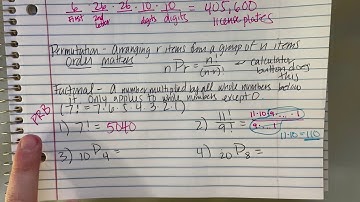 6 · 26 · 26 · 10 · 10 = 405,600
First 2nd Letter digits digits license plates
Permutation - Arranging r items from a group of n items
Order matters
nPr = n! / (n-r)! ← calculator button does this
Factorial - A number multiplied by all whole numbers below
it. Only applies to whole numbers except 0.
(7! = 7·6·5·4·3·2·1)
PRB
1) 7! = 5040
2) 11! / 9! = 11·10·9·...·1 / 9·...·1
11·10 = 110
3) 10P4 =
4) 20P8 =